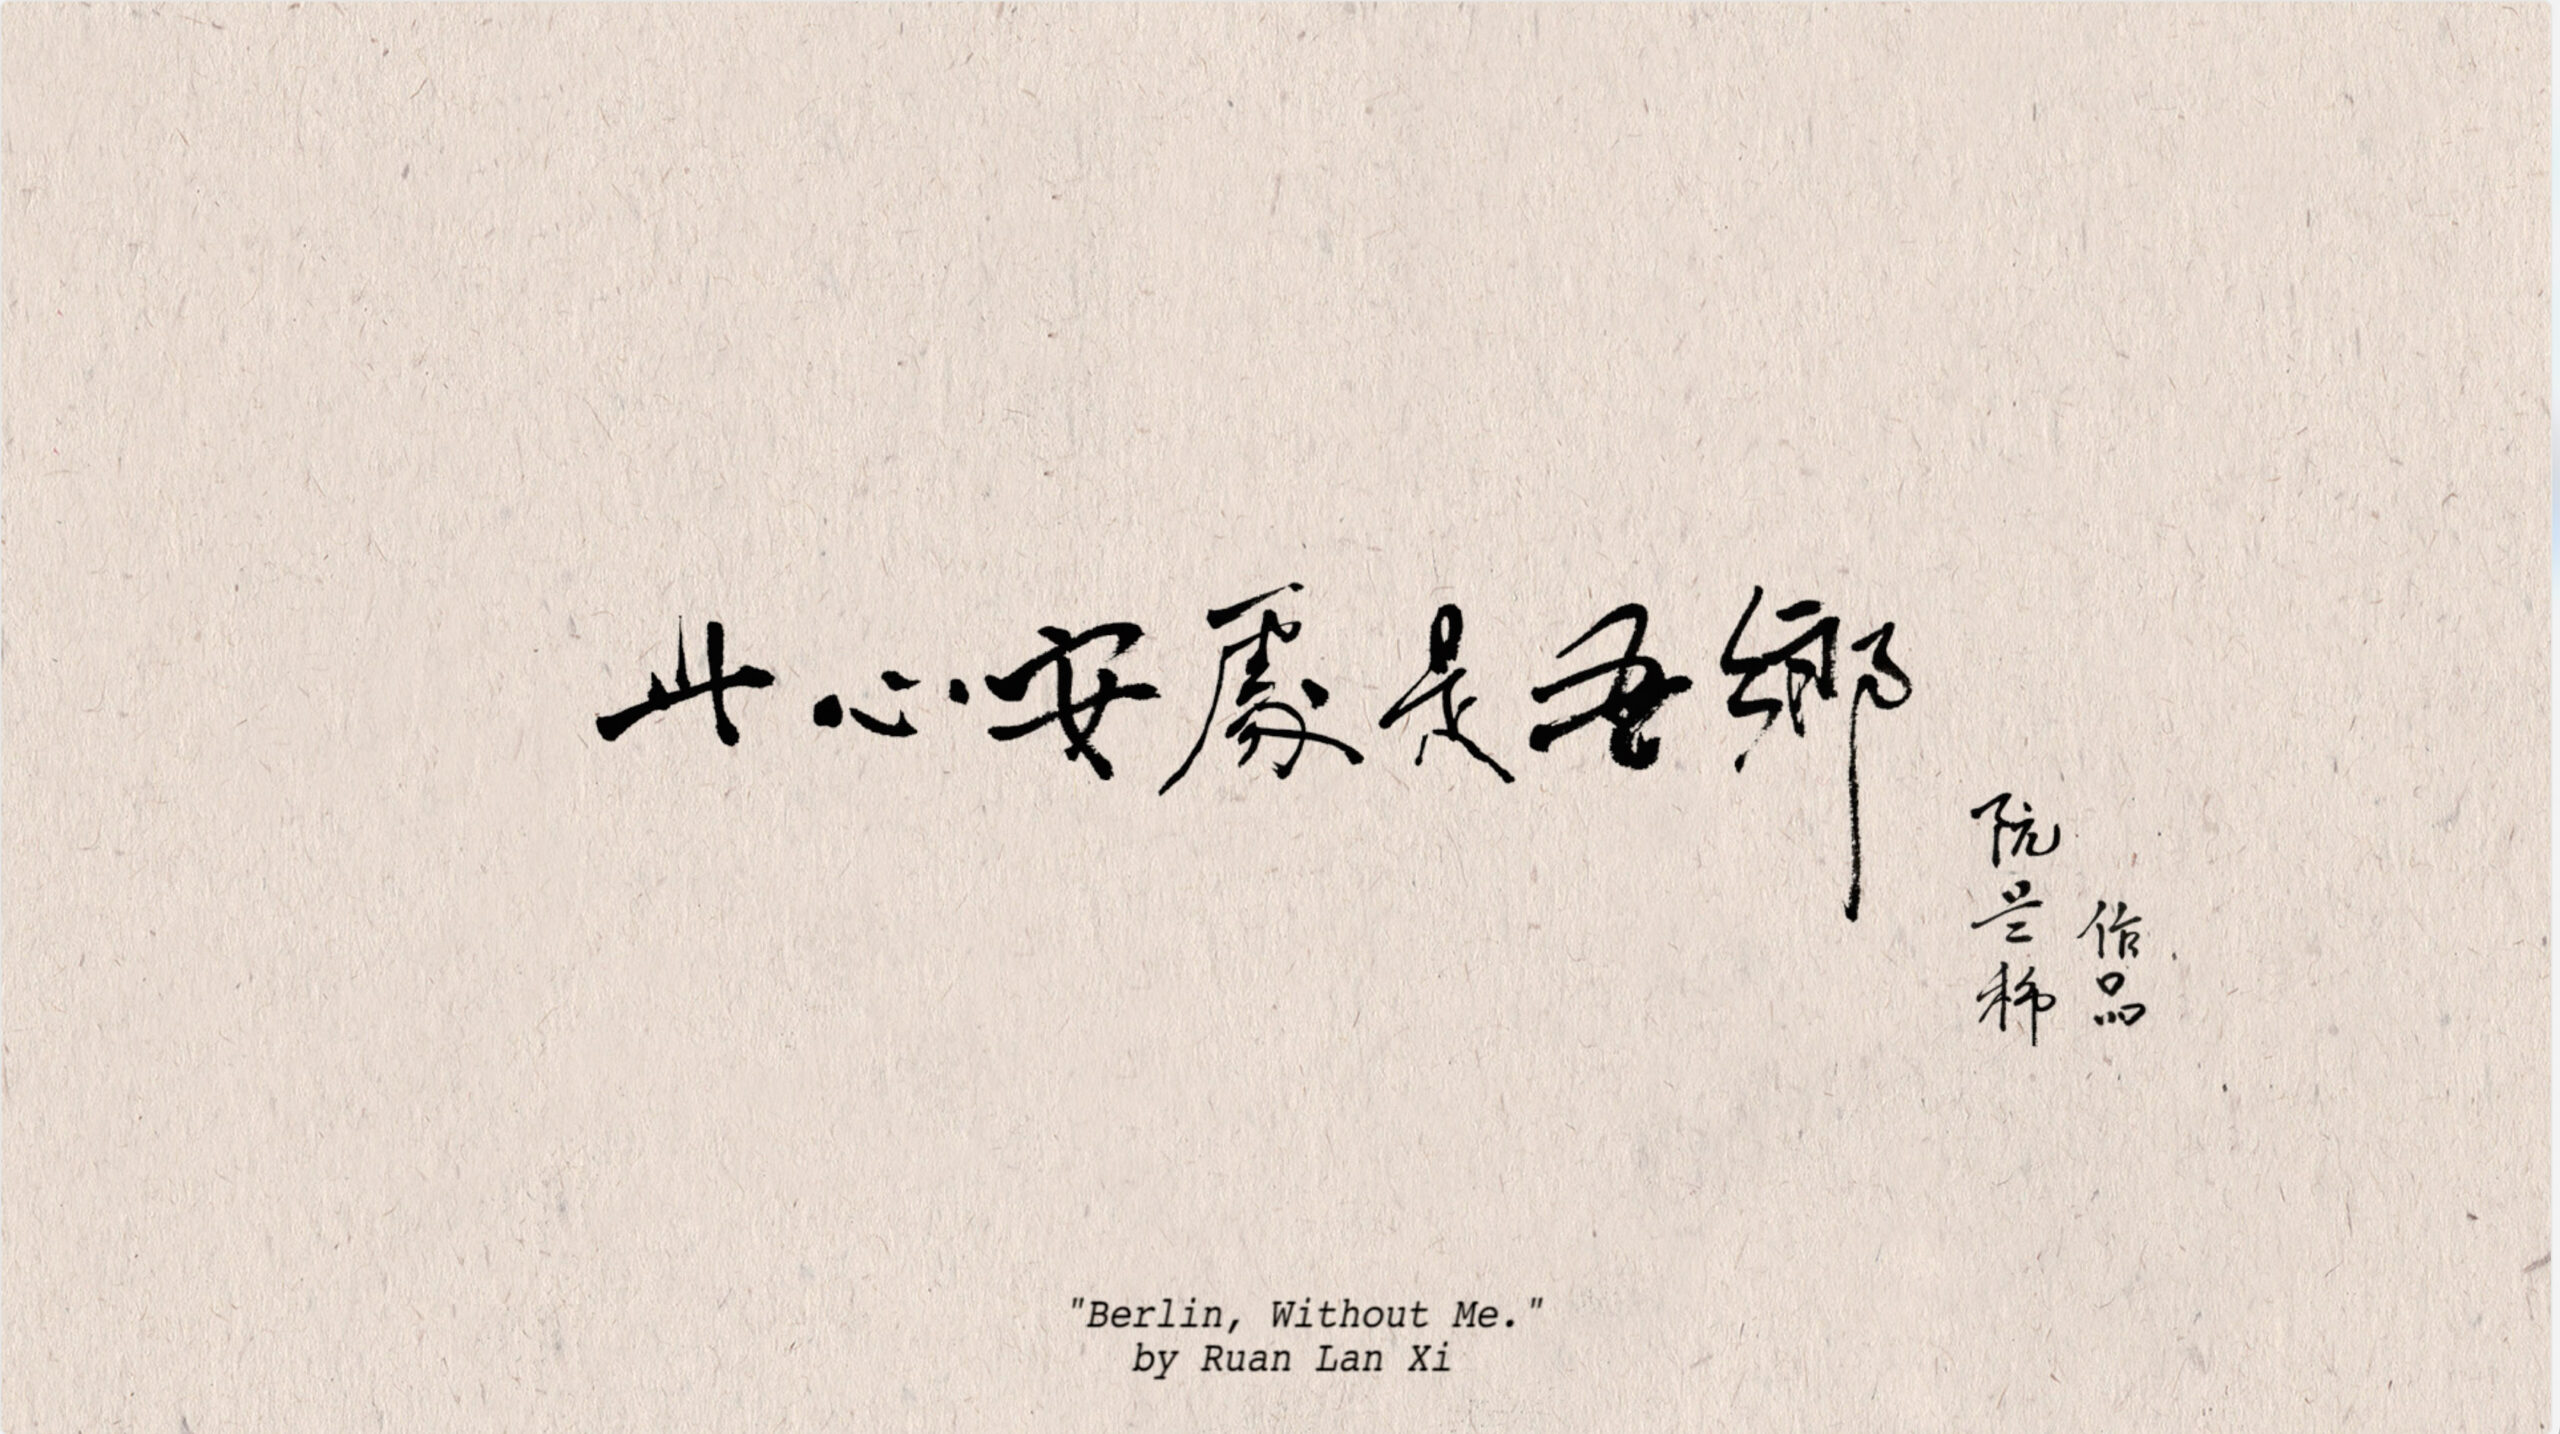 此心安處是吾鄉
阮兰稀
作品
"Berlin, Without Me."
by Ruan Lan Xi